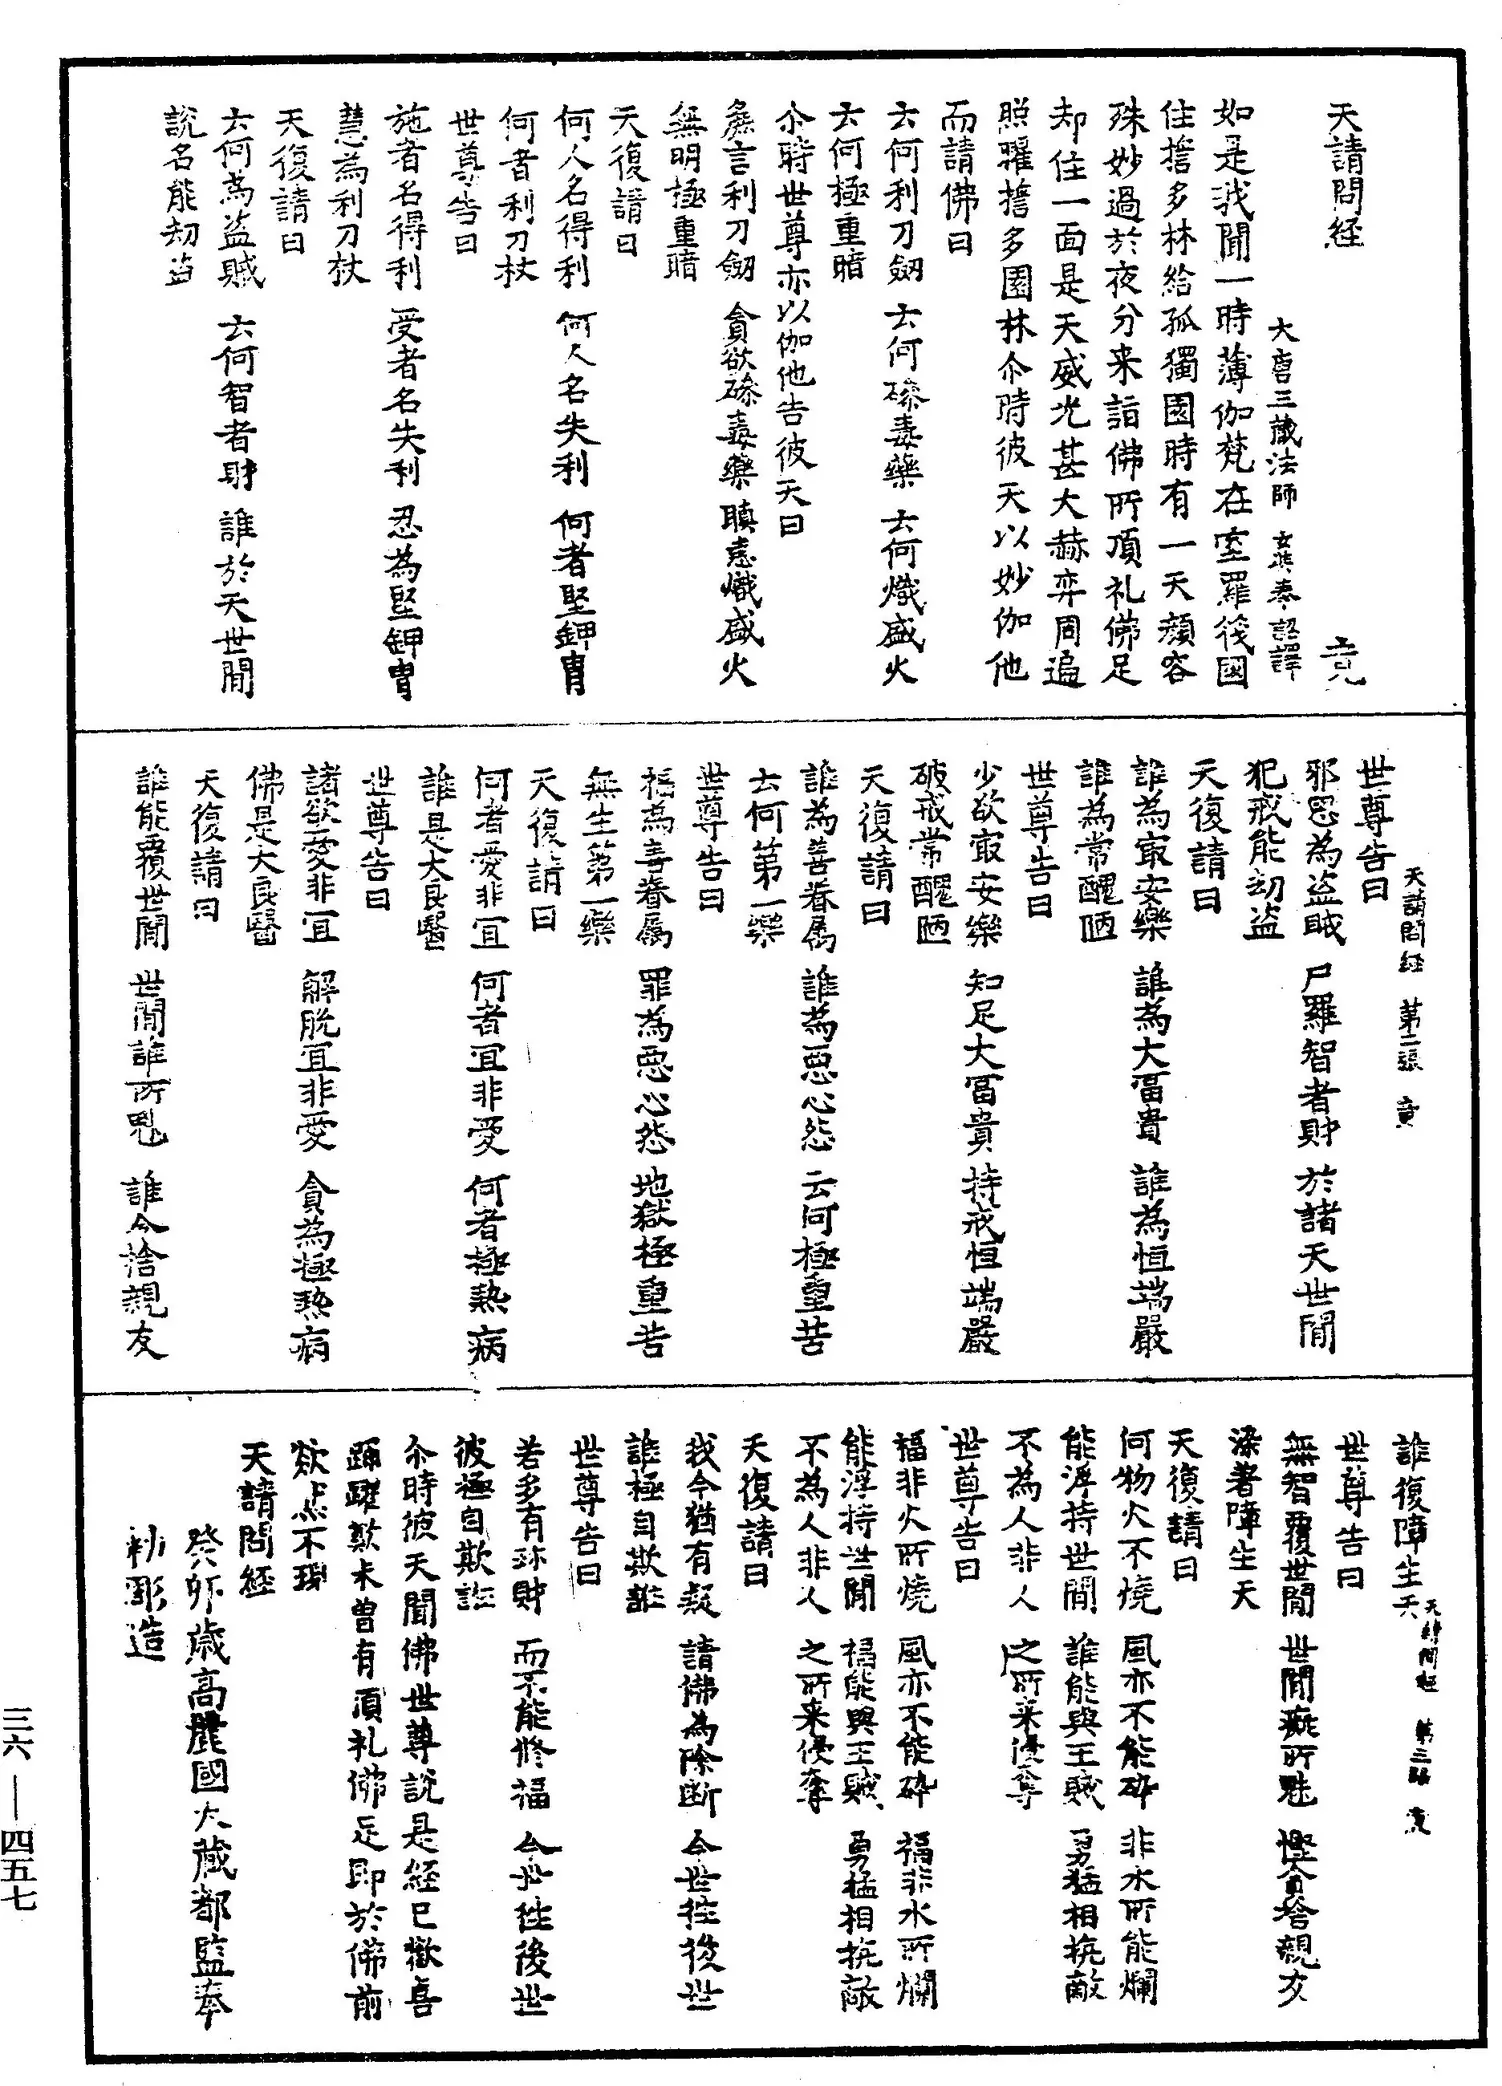 天請問経 竟
大唐三蔵法師 玄奘奉 詔譯
如是我聞一時薄伽梵在室羅筏國
住擔多林給孤獨園時有一天顏容
殊妙過於夜分来詣佛所頂礼佛足
却住一面是天威光甚大赫弈周遍
照曜擔多園林尒時彼天以妙伽他
而請佛曰
云何利刀劒 云何磣毒藥 云何熾盛火
云何極重暗
尒時世尊亦以伽他告彼天曰
麁言利刀劒 貪欲磣毒藥 瞋恚熾盛火
無明極重暗
天復請曰
何人名得利 何人名失利 何者堅鉀冑
何者利刀杖
世尊告曰
施者名得利 受者名失利 忍為堅鉀冑
慧為利刀杖
天復請曰
云何為盗賊 云何智者財 誰於天世間
說名能刼盗
世尊告曰
天請問経 第二張 竟
邪思為盗賊 尸羅智者財 於諸天世間
犯戒能刼盗
天復請曰
誰為㝡安樂 誰為大冨貴 誰為恒端嚴
誰為常醜陋
世尊告曰
少欲㝡安樂 知足大冨貴 持戒恒端嚴
破戒常醜陋
天復請曰
誰為善眷属 誰為悪心怨 云何極重苦
云何第一樂
世尊告曰
福為善眷属 罪為悪心怨 地獄極重苦
無生第一樂
天復請曰
何者愛非宜 何者宜非愛 何者極熱病
誰是大良醫
世尊告曰
諸欲愛非宜 解脫宜非愛 貪為極熱病
佛是大良醫
天復請曰
誰能覆世間 世間誰所魅 誰令捨親友
誰復障生天
天請問経 第三張 竟
世尊告曰
無智覆世間 世間癡所魅 慳貪捨親友
染著障生天
天復請曰
何物火不燒 風亦不能碎 非水所能爛
能浮持世間 誰能與王賊 勇猛相抗敵
不為人非人 之所来侵奪
世尊告曰
福非火所燒 風亦不能碎 福非水所爛
能浮持世間 福能與王賊 勇猛相抗敵
不為人非人 之所来侵奪
天復請曰
我今猶有疑 請佛為除断 今世往後世
誰極自欺誑
世尊告曰
若多有珎財 而不能修福 今世往後世
彼極自欺誑
尒時彼天聞佛世尊說是経已歡喜
踊躍歎未曾有頂礼佛足即於佛前
欻然不現
天請問經
癸卯歳高麗國大藏都監奉
勑彫造
三六—四五七